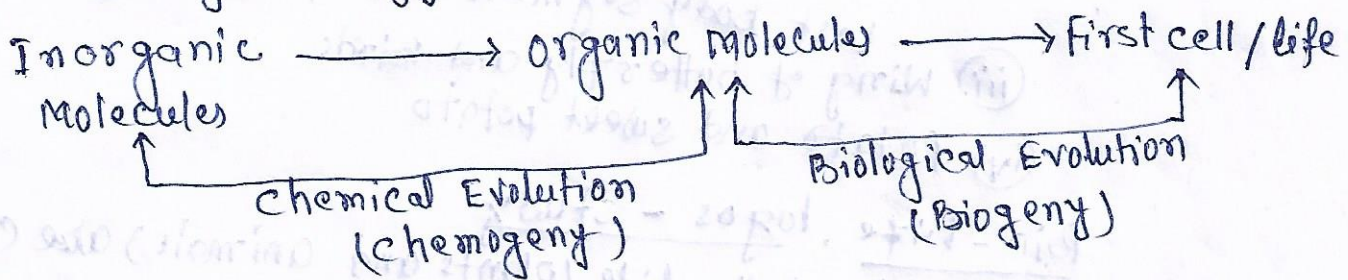 Inorganic → organic Molecules → First cell/life
Molecules
Chemical Evolution
(Chemogeny)
Biological Evolution
(Biogeny)